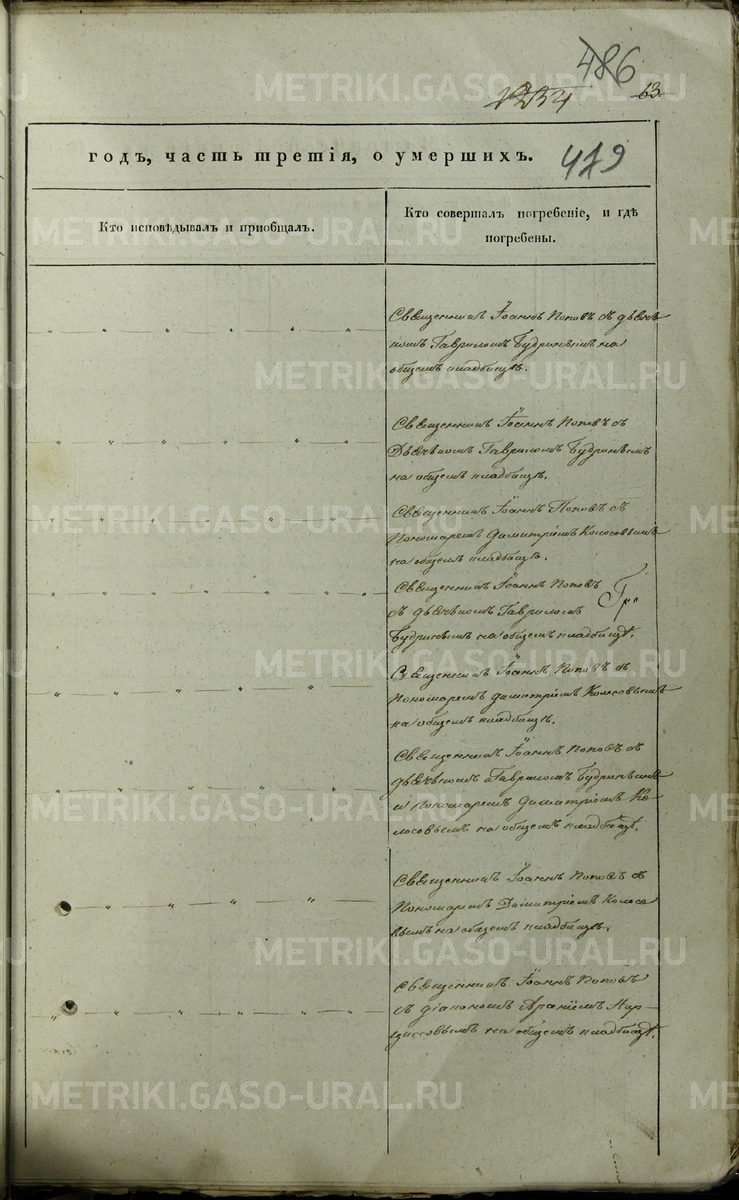 486
1234
63
годъ, часть третія, о умершихъ.
479
Кто исповѣдывалъ и пріобщалъ.
Кто совершалъ погребеніе, и гдѣ
погребены.
Священникъ Іоаннъ Поповъ съ дьячк
комъ Гавриломъ Будринымъ на
общемъ кладбищѣ.
Священникъ Іоаннъ Поповъ съ
Дьячкомъ Гавриломъ Будринымъ
на общемъ кладбищѣ.
Священникъ Іоаннъ Поповъ съ
Пономаремъ Димитріемъ Колосовымъ
на общемъ кладбищѣ.
Священникъ Іоаннъ Поповъ
съ дьячкомъ Гавриломъ
Будринымъ на общемъ кладбищѣ.
Священникъ Іоаннъ Поповъ съ
пономаремъ Димитріемъ Колосовымъ
на общемъ кладбищѣ.
Священникъ Іоаннъ Поповъ съ
дьячкомъ Гавриломъ Будринымъ
и Пономаремъ Димитріемъ Ко-
лосовымъ на общемъ кладбищѣ.
Священникъ Іоаннъ Поповъ съ
Пономаремъ Димитріемъ Колосо
вымъ на общемъ кладбищѣ.
Священникъ Іоаннъ Поповъ
съ діакономъ
на общемъ кладбищѣ.
METRIKI.GASO-URAL.RU